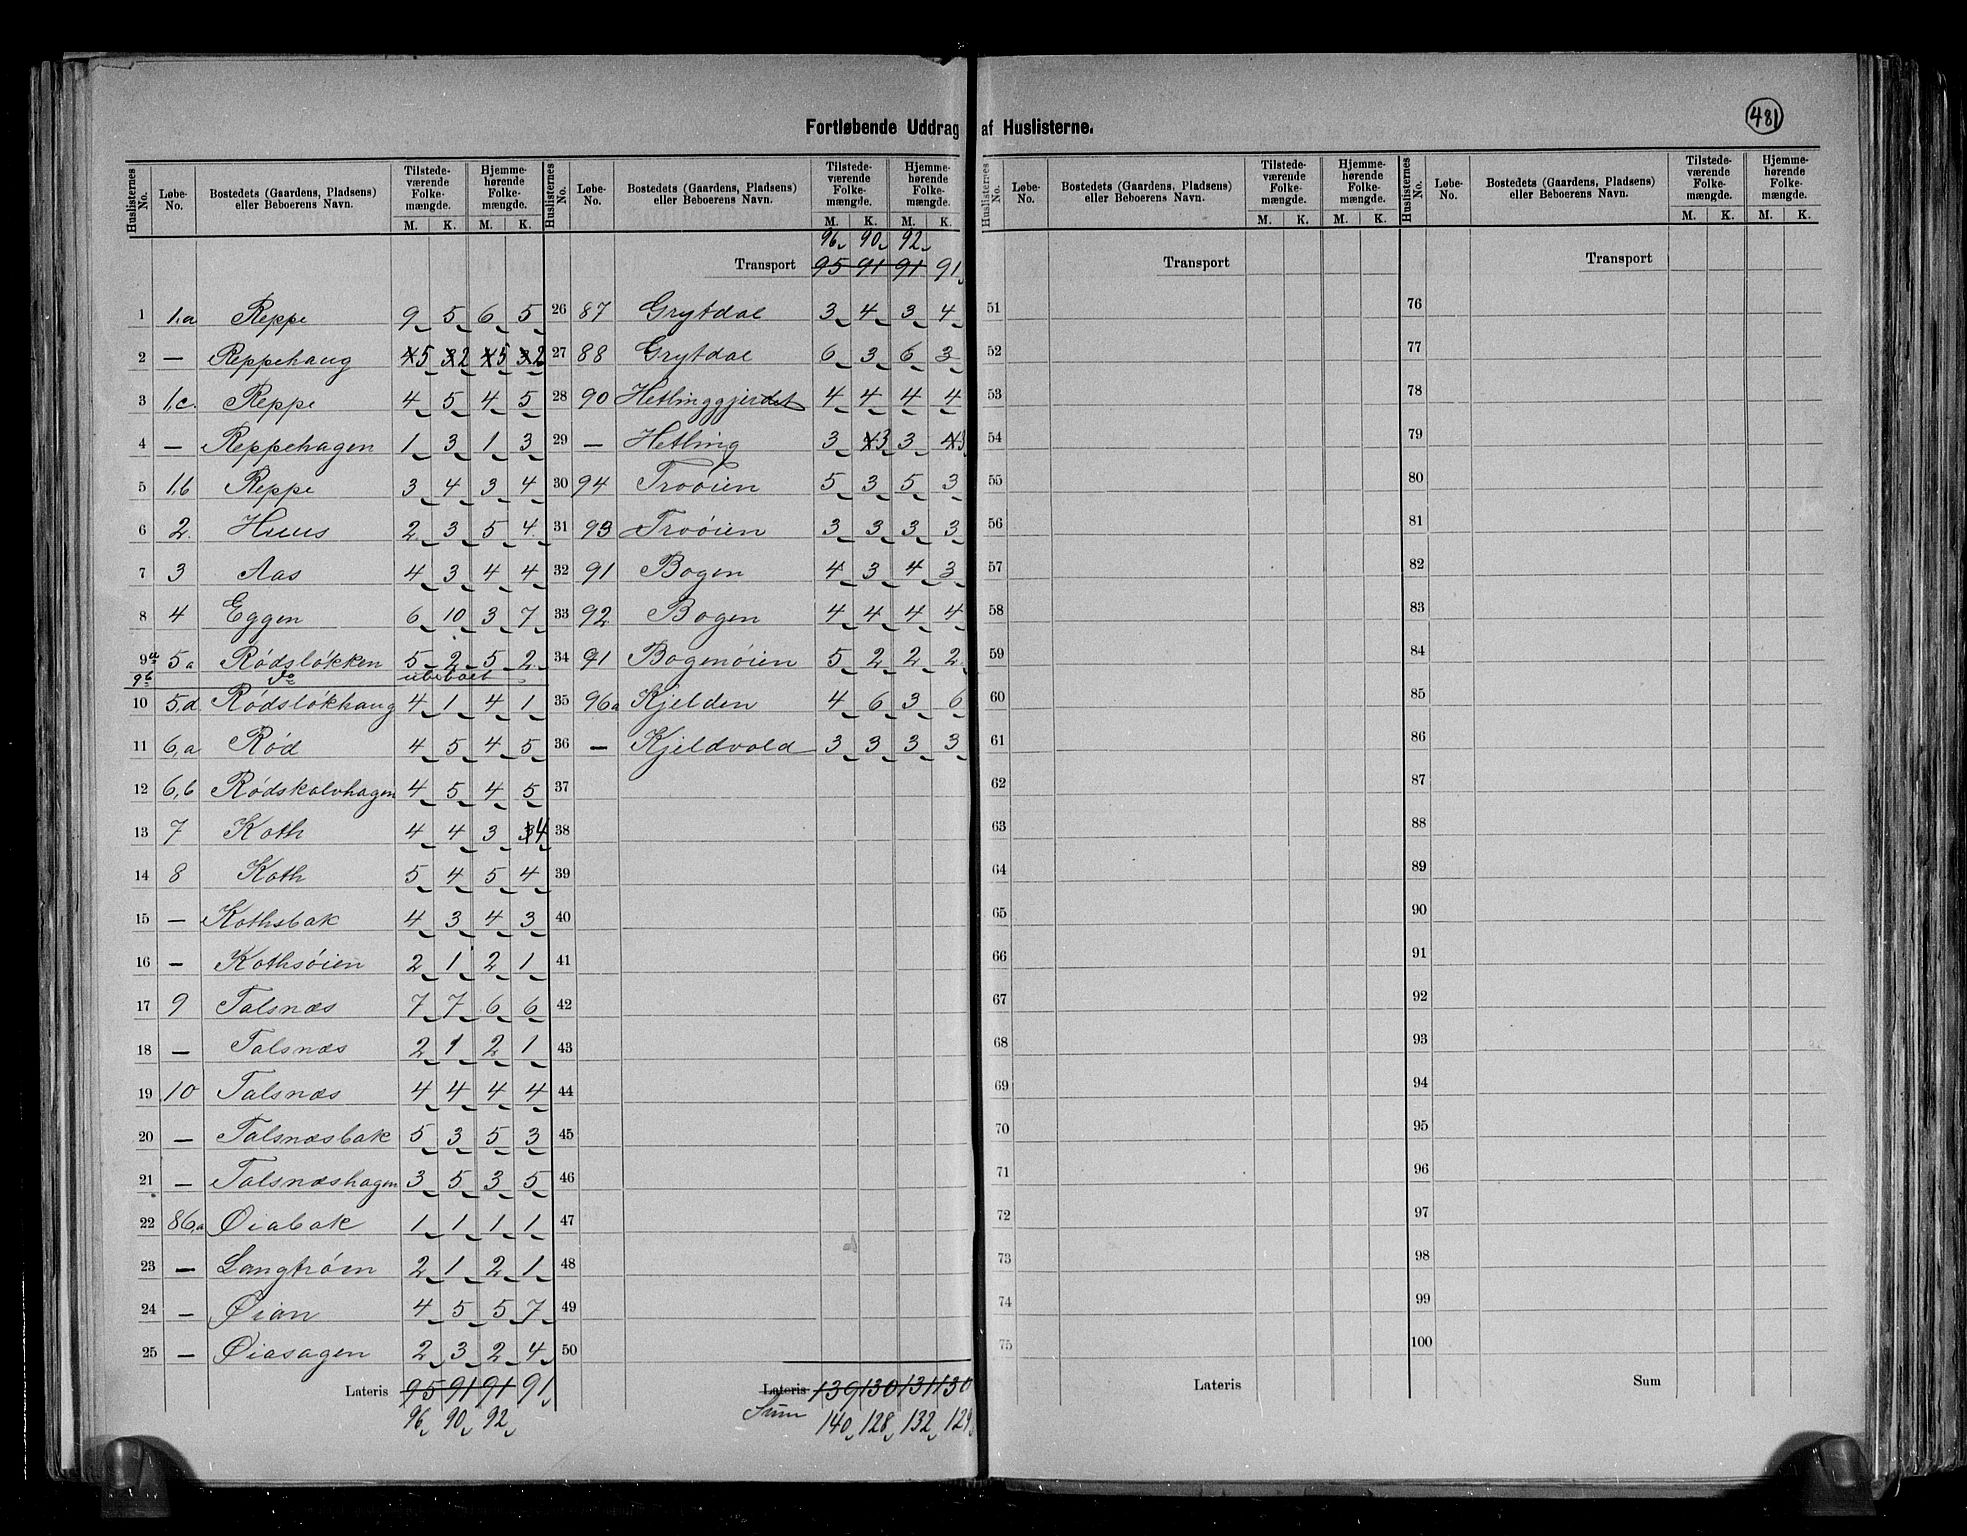 481
Fortløbende Uddrag af Huslisterne.
Huslisternes No. Løbe-No. Bostedets (Gaardens, Pladsens) eller Beboerens Navn. Tilstedeværende Folkemængde. M. K. Hjemmehørende Folkemængde. M. K.
1 1,a Reppe 9 5 6 5
2 — Reppehaug 4 5 3 2 4 5 3 2
3 1,c. Reppe 4 5 4 5
4 — Reppehagen 1 3 1 3
5 1,b Reppe 3 4 3 4
6 2. Huus 2 3 5 4
7 3 Aas 4 3 4 4
8 4 Eggen 6 10 3 7
9a 5a Rødsløkken 5 2 5 2
9b do ubeboet
10 5,d Rødsløkhaug 4 1 4 1
11 6,a Rød 4 5 4 5
12 6,b Rødskalvhagen 4 5 4 5
13 7 Koth 4 4 3 3 4
14 8 Koth 5 4 5 4
15 — Kothsbak 4 3 4 3
16 — Kothsøien 2 1 2 1
17 9 Talsnæs 7 7 6 6
18 — Talsnæs 2 1 2 1
19 10 Talsnæs 4 4 4 4
20 — Talsnæsbak 5 3 5 3
21 — Talsnæshagen 3 5 3 5
22 86,a Øiabak 1 1 1 1
23 — Langtrøen 2 1 2 1
24 — Øian 4 5 5 7
25 — Øiasagen 2 3 2 4
Lateris 95 91 91 91
96 90 92
Huslisternes No. Løbe-No. Bostedets (Gaardens, Pladsens) eller Beboerens Navn. Tilstedeværende Folkemængde. M. K. Hjemmehørende Folkemængde. M. K.
96 90 92
Transport 95 91 91 91
26 87 Grytdal 3 4 3 4
27 88 Grytdal 6 3 6 3
28 90 Hetlinggjerdet 4 4 4 4
29 — Hetling 3 4 3 3 4 3
30 94 Troøien 5 3 5 3
31 93 Troøien 3 3 3 3
32 91 Bogen 4 3 4 3
33 92 Bogen 4 4 4 4
34 91 Bogenøien 5 2 2 2
35 96a Kjelden 4 6 3 6
36 — Kjeldvold 3 3 3 3
37
38
39
40
41
42
43
44
45
46
47
48
49
50
Lateris 139 130 131 130
Sum 140 128 132 129
Huslisternes No. Løbe-No. Bostedets (Gaardens, Pladsens) eller Beboerens Navn. Tilstedeværende Folkemængde. M. K. Hjemmehørende Folkemængde. M. K.
Transport
51
52
53
54
55
56
57
58
59
60
61
62
63
64
65
66
67
68
69
70
71
72
73
74
75
Lateris
Huslisternes No. Løbe-No. Bostedets (Gaardens, Pladsens) eller Beboerens Navn. Tilstedeværende Folkemængde. M. K. Hjemmehørende Folkemængde. M. K.
Transport
76
77
78
79
80
81
82
83
84
85
86
87
88
89
90
91
92
93
94
95
96
97
98
99
100
Sum